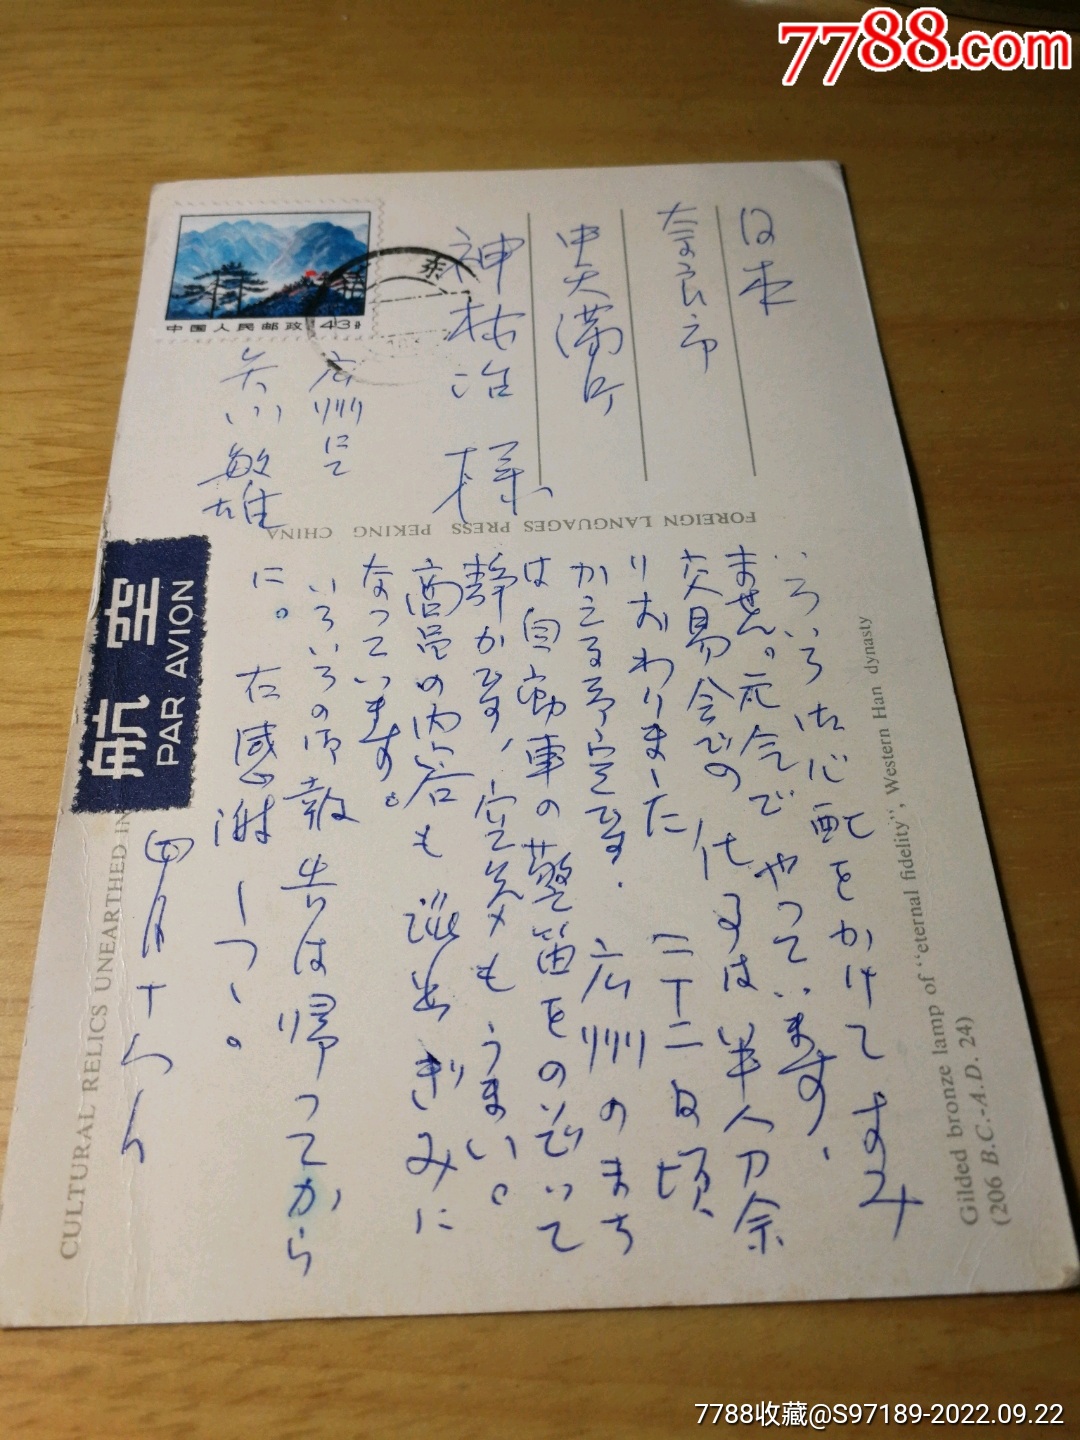 7788.com
日本
奈良市
中天満町
神林治様
中国人民邮政 43分
広州にて
矢川敏雄
FOREIGN LANGUAGES PRESS PEKING CHINA
航空
PAR AVION
いろいろ御心配をかけてすみ
ません。元気でやっています。
交易会での仕事は半分余
りおわりました 二十二日頃
かえる予定です。広州のまち
は自動車の警笛をのぞいて
静かです、空気もうまい。
商品の内容も進出ぎみに
なっています。
いろいろの御報告は帰ってから
に。右感謝しつつ。
四月十
CULTURAL RELICS UNEARTHED IN
Gilded bronze lamp of "eternal fidelity", Western Han dynasty
(206 B.C.-A.D. 24)
7788收藏@S97189-2022.09.22